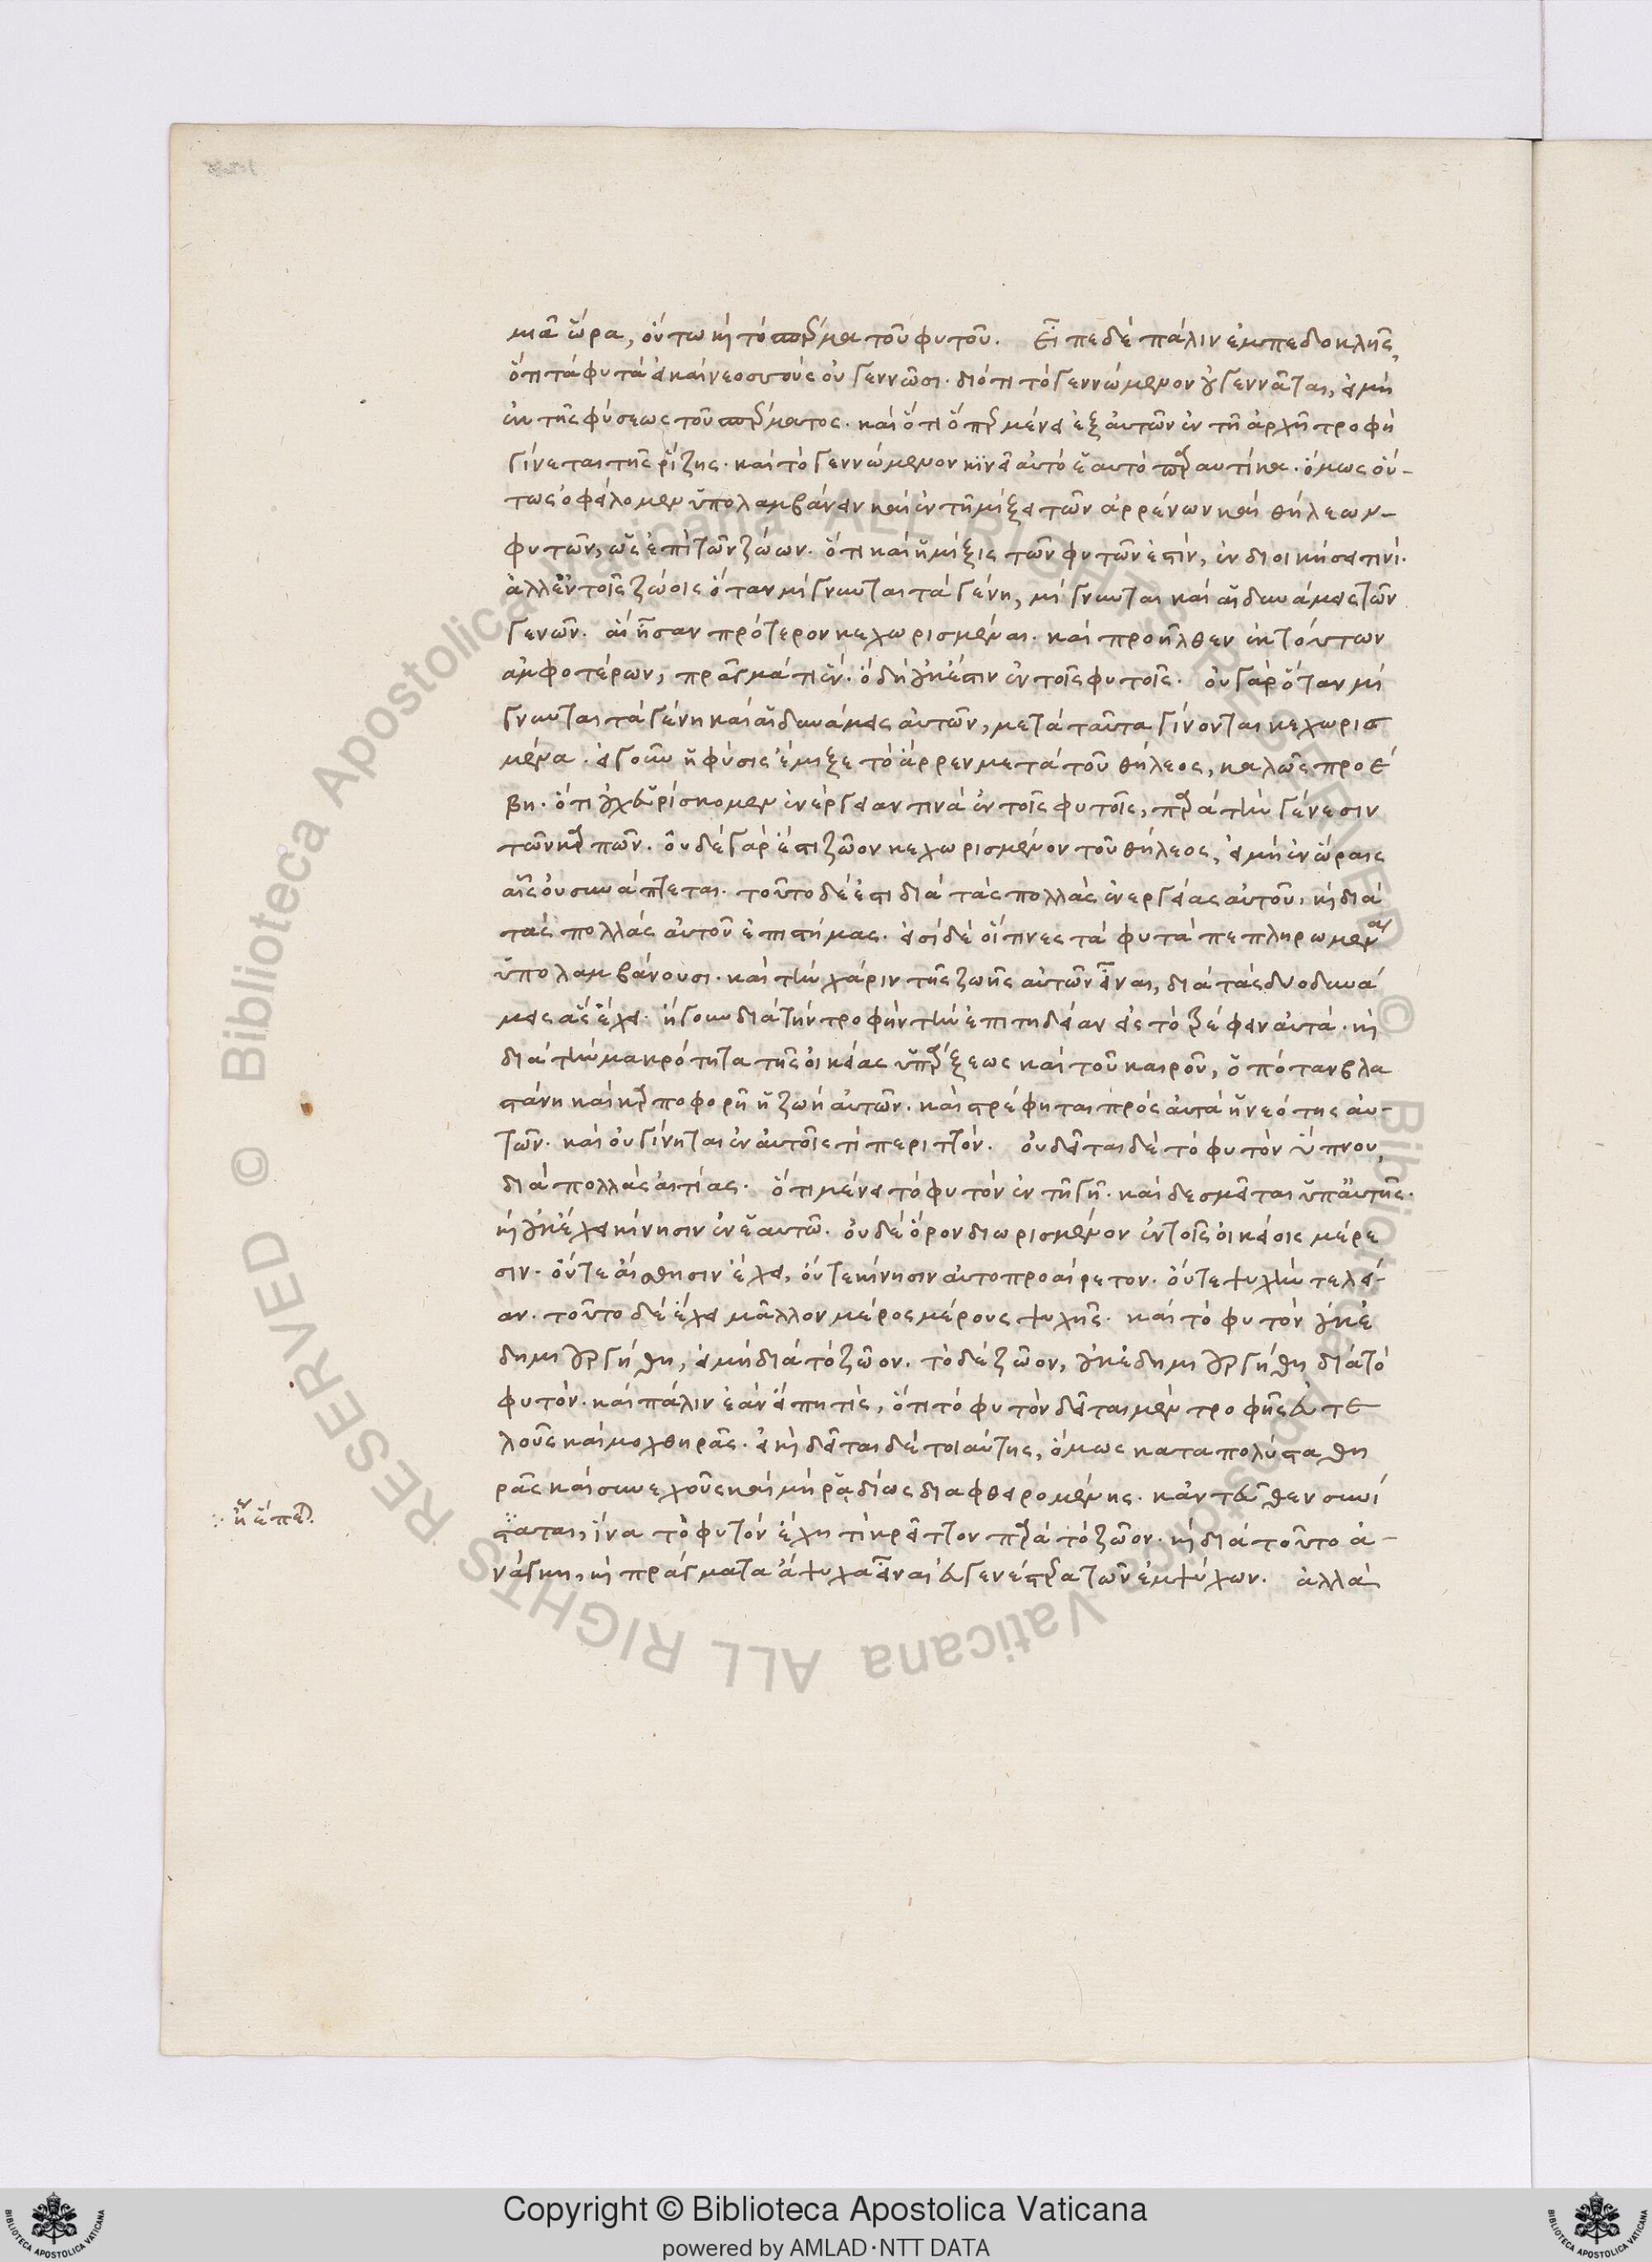 μιᾶ ὥρα, οὕτω καὶ τὸ σπέρμα τοῦ φυτοῦ. Εἶπε δὲ πάλιν ἐμπεδοκλῆς,
ὅτι τὰ φυτὰ εἰ καὶ νεοσσοὺς οὐ γεννῶσι. διότι τὸ γεννώμενον οὐ γεννᾶται, εἰ μὴ
ἐκ τῆς φύσεως τοῦ σπέρματος. καὶ ὅτι ὅπερ μένει ἐξ αὐτῶν ἐν τῆ ἀρχῆ τροφὴ
γίνεται τῆς ῥίζης. καὶ τὸ γεννώμενον κινεῖ αὐτὸ ἑαυτὸ παραυτίκα. ὅμως οὕ-
τως ὀφείλομεν ὑπολαμβάνειν καὶ ἐν τῆ μίξει τῶν ἀρρένων καὶ θήλεων
φυτῶν, ὡς ἐπὶ τῶν ζώων. ὅτι καὶ ἡ μίξις τῶν φυτῶν ἐστὶν, ἐν διοικήσει τινί.
ἀλλ' ἐν τοῖς ζώοις ὅταν μίγνυνται τὰ γένη, μίγνυνται καὶ αἱ δυνάμεις τῶν
γενῶν. αἳ ἦσαν πρότερον κεχωρισμέναι. καὶ προῆλθεν ἐκ τούτων
ἀμφοτέρων, πρᾶγμά τι ἕν. ὃ δὴ οὐκ ἔστιν ἐν τοῖς φυτοῖς. οὐ γὰρ ὅταν μί
γνυνται τὰ γένη καὶ αἱ δυνάμεις αὐτῶν, μετὰ ταῦτα γίνονται κεχωρισ
μένα. εἰ γοῦν ἡ φύσις ἔμιξε τὸ ἄρρεν μετὰ τοῦ θήλεος, καλῶς προέ
βη. ὅτι οὐχ εὑρίσκομεν ἐνέργειαν τινὰ ἐν τοῖς φυτοῖς, παρὰ τὴν γένεσιν
τῶν καρπῶν. οὐδὲ γὰρ ἐστι ζῶον κεχωρισμένον τοῦ θήλεος, εἰ μὴ ἐν ὥραις
αἷς οὐ συνάπτεται. τοῦτο δέ ἐστι διὰ τὰς πολλὰς ἐνεργείας αὐτοῦ. καὶ διὰ
τὰς πολλὰς αὐτοῦ ἐπιστήμας. εἰσὶ δὲ οἵτινες τὰ φυτὰ πεπληρωμένα
ὑπολαμβάνουσι. καὶ τὴν χάριν τῆς ζωῆς αὐτῶν εἶναι, διὰ τὰς δύο δυνά
μεις ἃς ἔχει. ἤγουν διὰ τὴν τροφὴν τὴν ἐπιτηδείαν εἰς τὸ τρέφειν αὐτά. καὶ
διὰ τὴν μακρότητα τῆς οἰκείας ὑπάρξεως καὶ τοῦ καιροῦ, ὁπόταν βλα
στάνη καὶ καρποφορῆ ἡ ζωὴ αὐτῶν. καὶ στρέφηται πρὸς αὐτὰ ἡ νεότης αὐ-
τῶν. καὶ οὐ γίνηται ἐν αὐτοῖς τὶ περιττόν. οὐ δεῖται δὲ τὸ φυτὸν ὕπνου,
διὰ πολλὰς αἰτίας. ὅτι μένει τὸ φυτὸν ἐν τῆ γῆ. καὶ δεσμεῖται ὑπ' αὐτῆς.
καὶ οὐκ ἔχει κίνησιν ἐν ἑαυτῶ. οὐδὲ ὅρον διωρισμένον ἐν τοῖς οἰκείοις μέρε
σιν. οὔτε αἴσθησιν ἔχει, οὔτε κίνησιν αὐτοπροαίρετον. οὔτε ψυχὴν τελεί-
αν. τοῦτο δὲ ἔχει μᾶλλον μέρος μέρους ψυχῆς. καὶ τὸ φυτὸν οὐκ ἐ
δημιουργήθη, εἰ μὴ διὰ τὸ ζῶον. τὸ δὲ ζῶον, οὐκ ἐδημιουργήθη διὰ τὸ
φυτόν. καὶ πάλιν ἐὰν εἴπη τὶς, ὅτι τὸ φυτὸν δεῖται μὲν τροφῆς εὐτε
λοῦς καὶ μοχθηρᾶς. εἰ καὶ δεῖται δὲ τοιαύτης, ὅμως καταπολὺ σταθη
ρᾶς καὶ συνεχοῦς καὶ μὴ ῥᾳδίως διαφθειρομένης. κἀντεῦθεν συνί
σταται, ἵνα τὸ φυτὸν ἔχη τὶ κρεῖττον παρὰ τὸ ζῶον. καὶ διὰ τοῦτο ἀ-
νάγκη, καὶ πράγματα ἄψυχα εἶναι εὐγενέστερα τῶν ἐμψύχων. ἀλλὰ